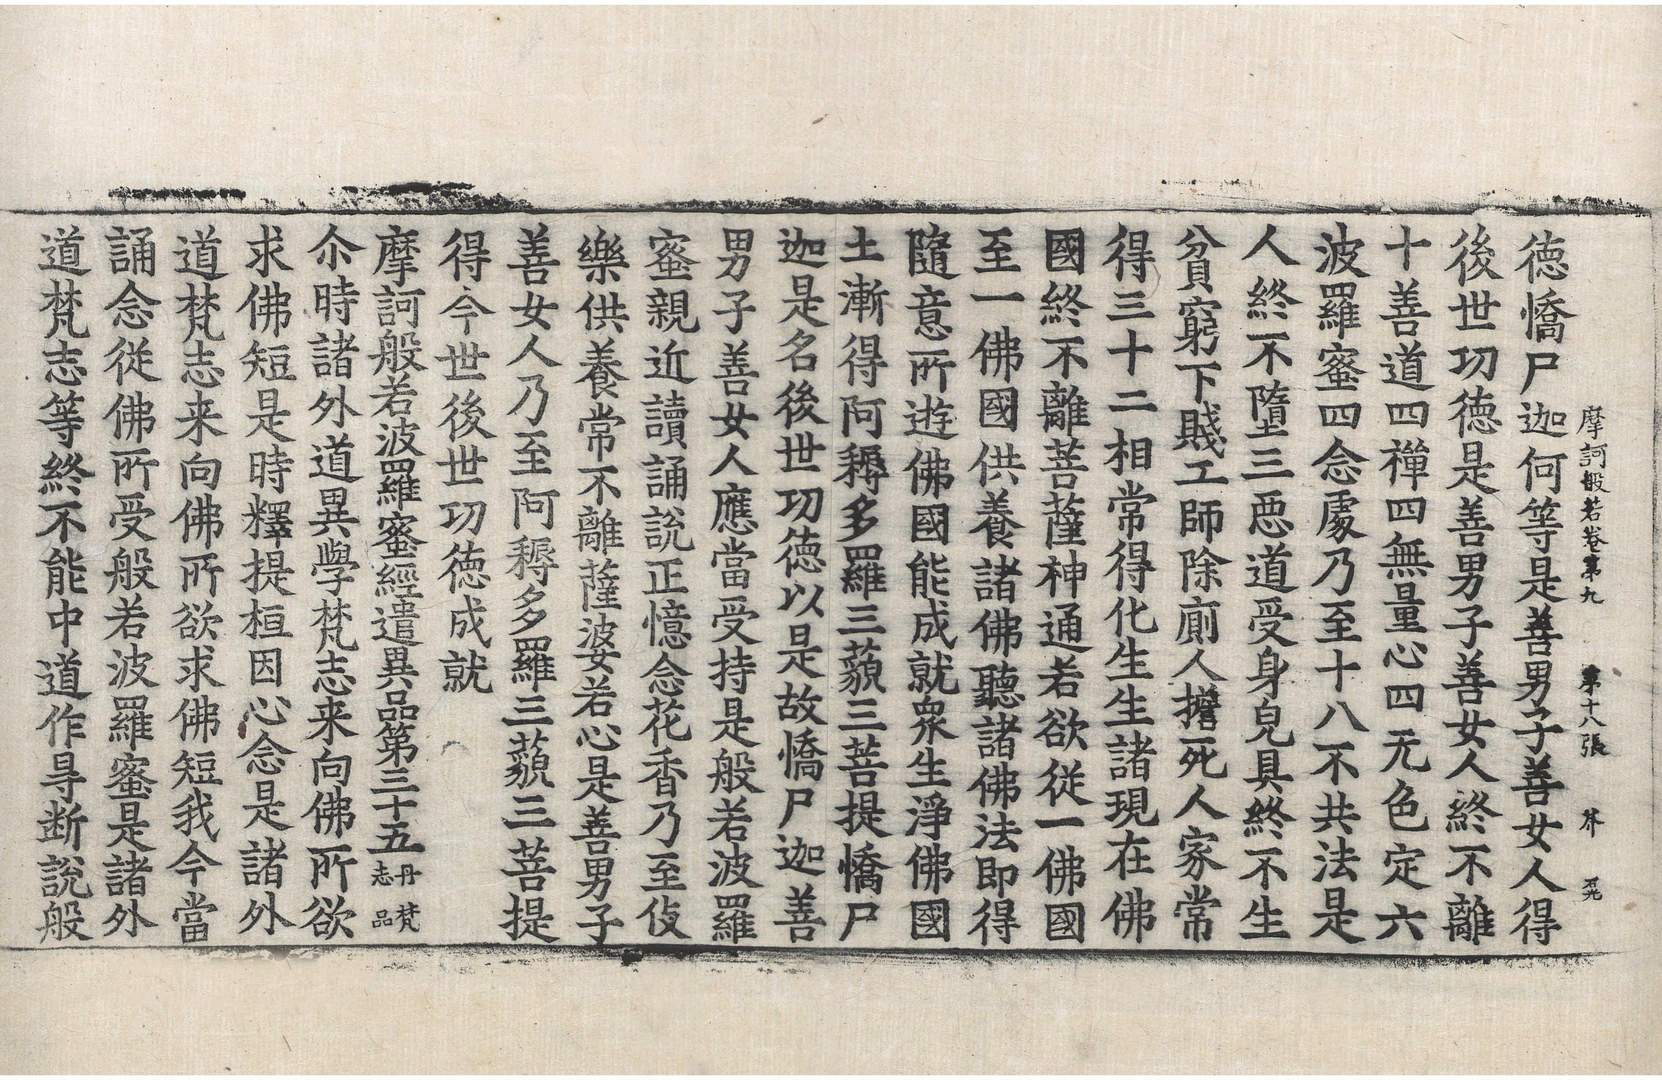 摩訶般若卷第九　第十八張　芥
德憍尸迦何等是善男子善女人得
後世功德是善男子善女人終不離
十善道四禪四無量心四无色定六
波羅蜜四念處乃至十八不共法是
人終不墮三惡道受身皃具終不生
貧窮下賤工師除廁人擔死人家常
得三十二相常得化生生諸現在佛
國終不離菩薩神通若欲從一佛國
至一佛國供養諸佛聽諸佛法即得
隨意所遊佛國能成就衆生淨佛國
土漸得阿耨多羅三藐三菩提憍尸
迦是名後世功德以是故憍尸迦善
男子善女人應當受持是般若波羅
蜜親近讀誦說正憶念花香乃至伎
樂供養常不離薩婆若心是善男子
善女人乃至阿耨多羅三藐三菩提
得今世後世功德成就
摩訶般若波羅蜜經遣異品第三十五丹梵志品
尒時諸外道異學梵志来向佛所欲
求佛短是時釋提桓因心念是諸外
道梵志来向佛所欲求佛短我今當
誦念從佛所受般若波羅蜜是諸外
道梵志等終不能中道作㝵断說般